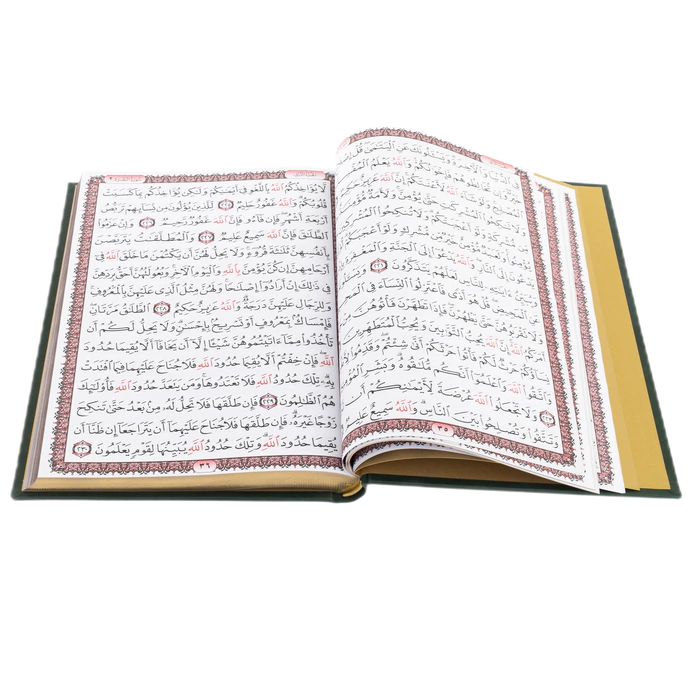 فِى ٱلدُّنْيَا وَٱلْأَخِرَةِ وَيَسْـَٔلُونَكَ عَنِ ٱلْيَتَـٰمَىٰ قُلْ إِصْلَاحٌ
لَّهُمْ خَيْرٌ وَإِن تُخَالِطُوهُمْ فَإِخْوَٰنُكُمْ وَٱللَّهُ يَعْلَمُ
ٱلْمُفْسِدَ مِنَ ٱلْمُصْلِحِ وَلَوْ شَآءَ ٱللَّهُ لَأَعْنَتَكُمْ إِنَّ ٱللَّهَ عَزِيزٌ
وَلَا تَنكِحُوا۟ ٱلْمُشْرِكَـٰتِ حَتَّىٰ يُؤْمِنَّ وَلَأَمَةٌ مُّؤْمِنَةٌ
خَيْرٌ مِّن مُّشْرِكَةٍ وَلَوْ أَعْجَبَتْكُمْ وَلَا تُنكِحُوا۟ ٱلْمُشْرِكِينَ
حَتَّىٰ يُؤْمِنُوا۟ وَلَعَبْدٌ مُّؤْمِنٌ خَيْرٌ مِّن مُّشْرِكٍ وَلَوْ أَعْجَبَكُمْ
يَدْعُونَ إِلَى ٱلنَّارِ وَٱللَّهُ يَدْعُوٓا۟ إِلَى ٱلْجَنَّةِ وَٱلْمَغْفِرَةِ
وَيُبَيِّنُ ءَايَـٰتِهِۦ لِلنَّاسِ لَعَلَّهُمْ يَتَذَكَّرُونَ ٢٢١
ٱلْمَحِيضِ قُلْ هُوَ أَذًى فَٱعْتَزِلُوا۟ ٱلنِّسَآءَ فِى
وَلَا تَقْرَبُوهُنَّ حَتَّىٰ يَطْهُرْنَ فَإِذَا تَطَهَّرْنَ فَأْتُوهُنَّ
أَمَرَكُمُ ٱللَّهُ إِنَّ ٱللَّهَ يُحِبُّ ٱلتَّوَّٰبِينَ وَيُحِبُّ ٱلْمُتَطَهِّرِينَ
نِسَآؤُكُمْ حَرْثٌ لَّكُمْ فَأْتُوا۟ حَرْثَكُمْ أَنَّىٰ شِئْتُمْ وَقَدِّمُوا۟
وَٱتَّقُوا۟ ٱللَّهَ وَٱعْلَمُوٓا۟ أَنَّكُم مُّلَـٰقُوهُ وَبَشِّرِ
وَلَا تَجْعَلُوا۟ ٱللَّهَ عُرْضَةً لِّأَيْمَـٰنِكُمْ أَن
وَتَتَّقُوا۟ وَتُصْلِحُوا۟ بَيْنَ ٱلنَّاسِ وَٱللَّهُ سَمِيعٌ عَلِيمٌ
٣٥
لَّا يُؤَاخِذُكُمُ ٱللَّهُ بِٱللَّغْوِ فِىٓ أَيْمَـٰنِكُمْ وَلَـٰكِن يُؤَاخِذُكُم بِمَا كَسَبَتْ
قُلُوبُكُمْ وَٱللَّهُ غَفُورٌ حَلِيمٌ ٢٢٥ لِّلَّذِينَ يُؤْلُونَ مِن نِّسَآئِهِمْ تَرَبُّصُ
أَرْبَعَةِ أَشْهُرٍ فَإِن فَآءُو فَإِنَّ ٱللَّهَ غَفُورٌ رَّحِيمٌ ٢٢٦ وَإِنْ عَزَمُوا۟
ٱلطَّلَـٰقَ فَإِنَّ ٱللَّهَ سَمِيعٌ عَلِيمٌ ٢٢٧ وَٱلْمُطَلَّقَـٰتُ يَتَرَبَّصْنَ
بِأَنفُسِهِنَّ ثَلَـٰثَةَ قُرُوٓءٍ وَلَا يَحِلُّ لَهُنَّ أَن يَكْتُمْنَ مَا خَلَقَ ٱللَّهُ فِىٓ
أَرْحَامِهِنَّ إِن كُنَّ يُؤْمِنَّ بِٱللَّهِ وَٱلْيَوْمِ ٱلْأَخِرِ وَبُعُولَتُهُنَّ أَحَقُّ بِرَدِّهِنَّ
فِى ذَٰلِكَ إِنْ أَرَادُوٓا۟ إِصْلَـٰحًا وَلَهُنَّ مِثْلُ ٱلَّذِى عَلَيْهِنَّ بِٱلْمَعْرُوفِ
وَلِلرِّجَالِ عَلَيْهِنَّ دَرَجَةٌ وَٱللَّهُ عَزِيزٌ حَكِيمٌ ٢٢٨ ٱلطَّلَـٰقُ مَرَّتَانِ
فَإِمْسَاكٌۢ بِمَعْرُوفٍ أَوْ تَسْرِيحٌۢ بِإِحْسَـٰنٍ وَلَا يَحِلُّ لَكُمْ أَن
تَأْخُذُوا۟ مِمَّآ ءَاتَيْتُمُوهُنَّ شَيْـًٔا إِلَّآ أَن يَخَافَآ أَلَّا يُقِيمَا حُدُودَ
ٱللَّهِ فَإِنْ خِفْتُمْ أَلَّا يُقِيمَا حُدُودَ ٱللَّهِ فَلَا جُنَاحَ عَلَيْهِمَا فِيمَا ٱفْتَدَتْ
بِهِۦ تِلْكَ حُدُودُ ٱللَّهِ فَلَا تَعْتَدُوهَا وَمَن يَتَعَدَّ حُدُودَ ٱللَّهِ فَأُو۟لَـٰٓئِكَ
هُمُ ٱلظَّـٰلِمُونَ ٢٢٩ فَإِن طَلَّقَهَا فَلَا تَحِلُّ لَهُۥ مِنۢ بَعْدُ حَتَّىٰ تَنكِحَ
زَوْجًا غَيْرَهُۥ فَإِن طَلَّقَهَا فَلَا جُنَاحَ عَلَيْهِمَآ أَن يَتَرَاجَعَآ إِن ظَنَّآ أَن
يُقِيمَا حُدُودَ ٱللَّهِ وَتِلْكَ حُدُودُ ٱللَّهِ يُبَيِّنُهَا لِقَوْمٍ يَعْلَمُونَ ٢٣٠
٣٦